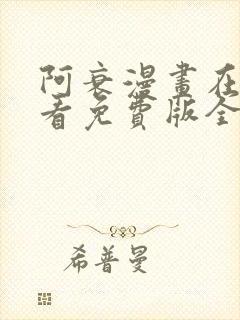 阿衰漫畫在
看免費版全
希普曼